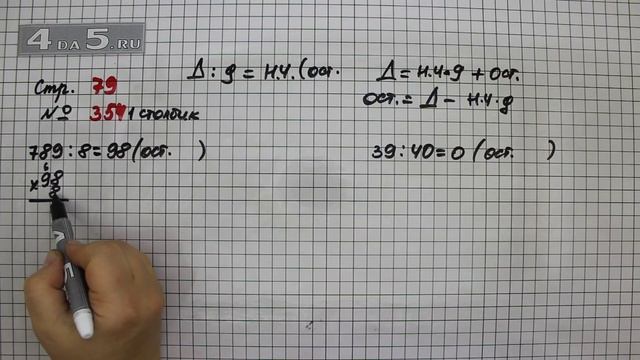 4DA5.RU
Стр. 79
№ 354 1 столбик
Д : д = н.ч. (ост.
Д = н.ч • д + ост.
ост. = Д - н.ч • д
789 : 8 = 98 (ост. )
6
× 98
8
39 : 40 = 0 (ост. )